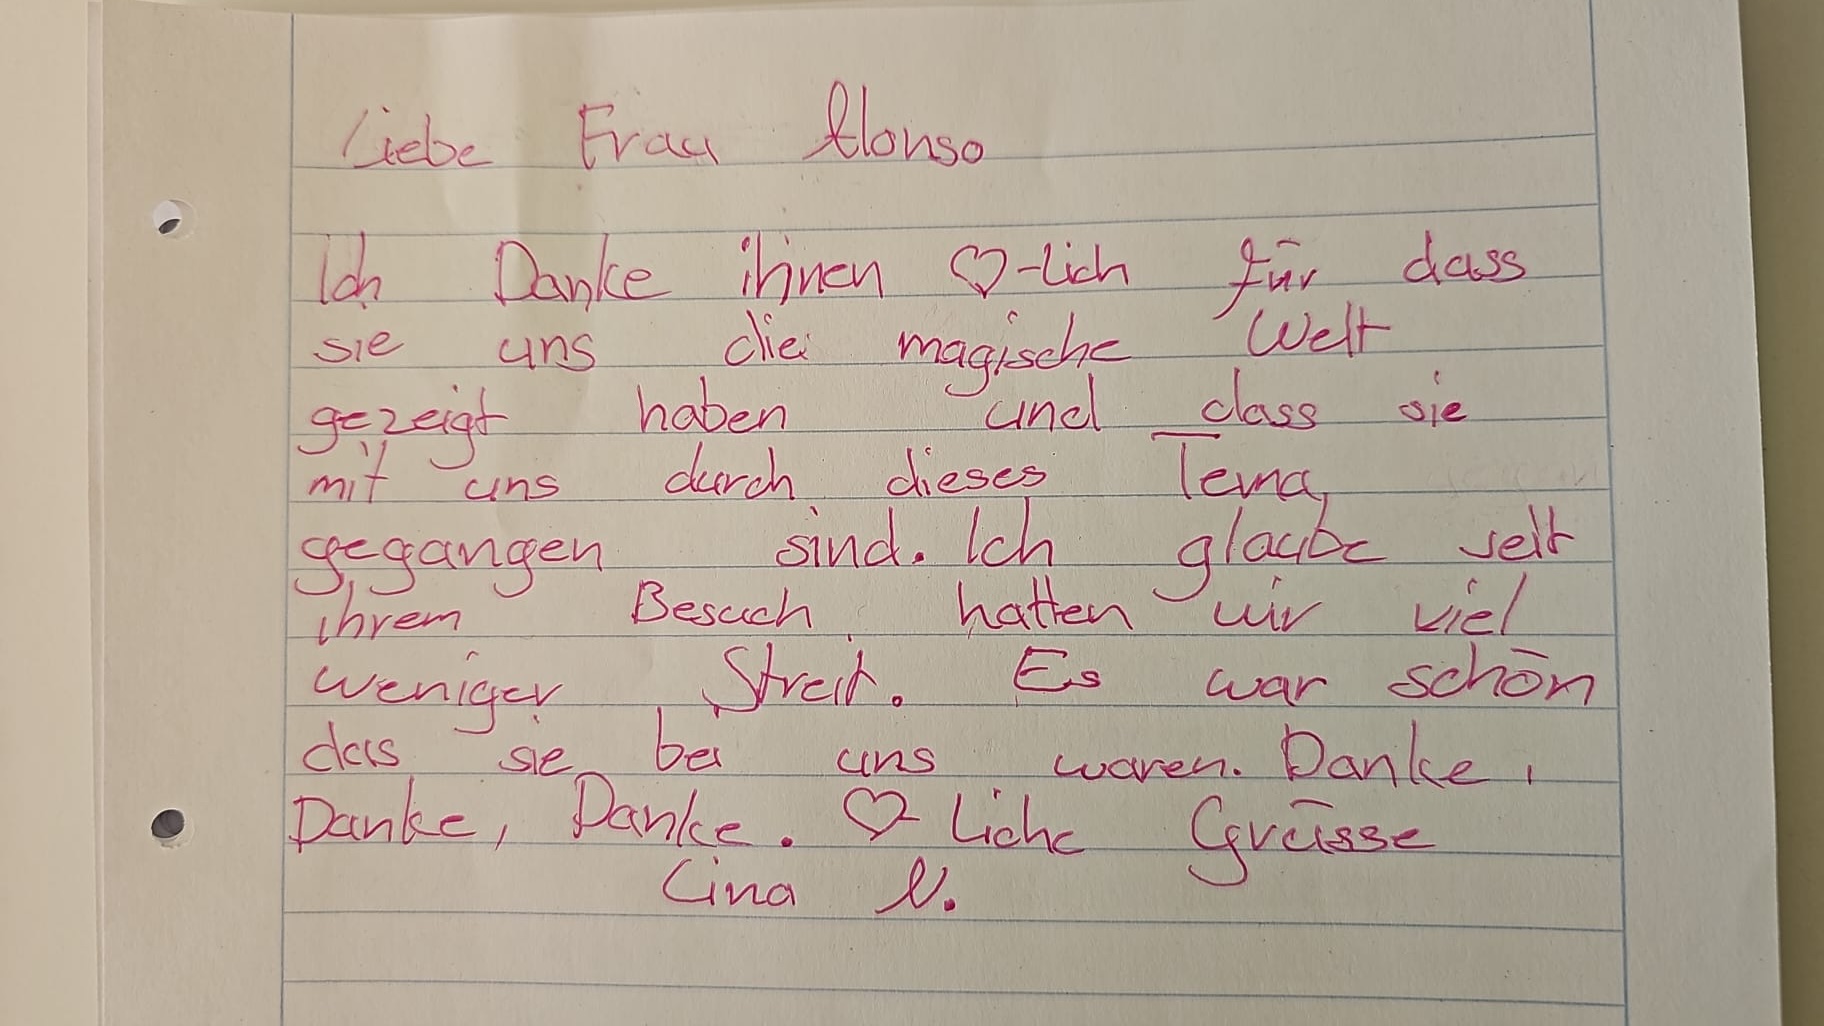 Liebe Frau Alonso
Ich Danke ihnen ♡-lich für dass
sie uns die magische Welt
gezeigt haben und dass sie
mit uns durch dieses Tema
gegangen sind. Ich glaube seit
ihrem Besuch hatten wir viel
weniger Streit. Es war schön
das sie bei uns waren. Danke,
Danke, Danke. ♡-liche Grüsse
Lina N.